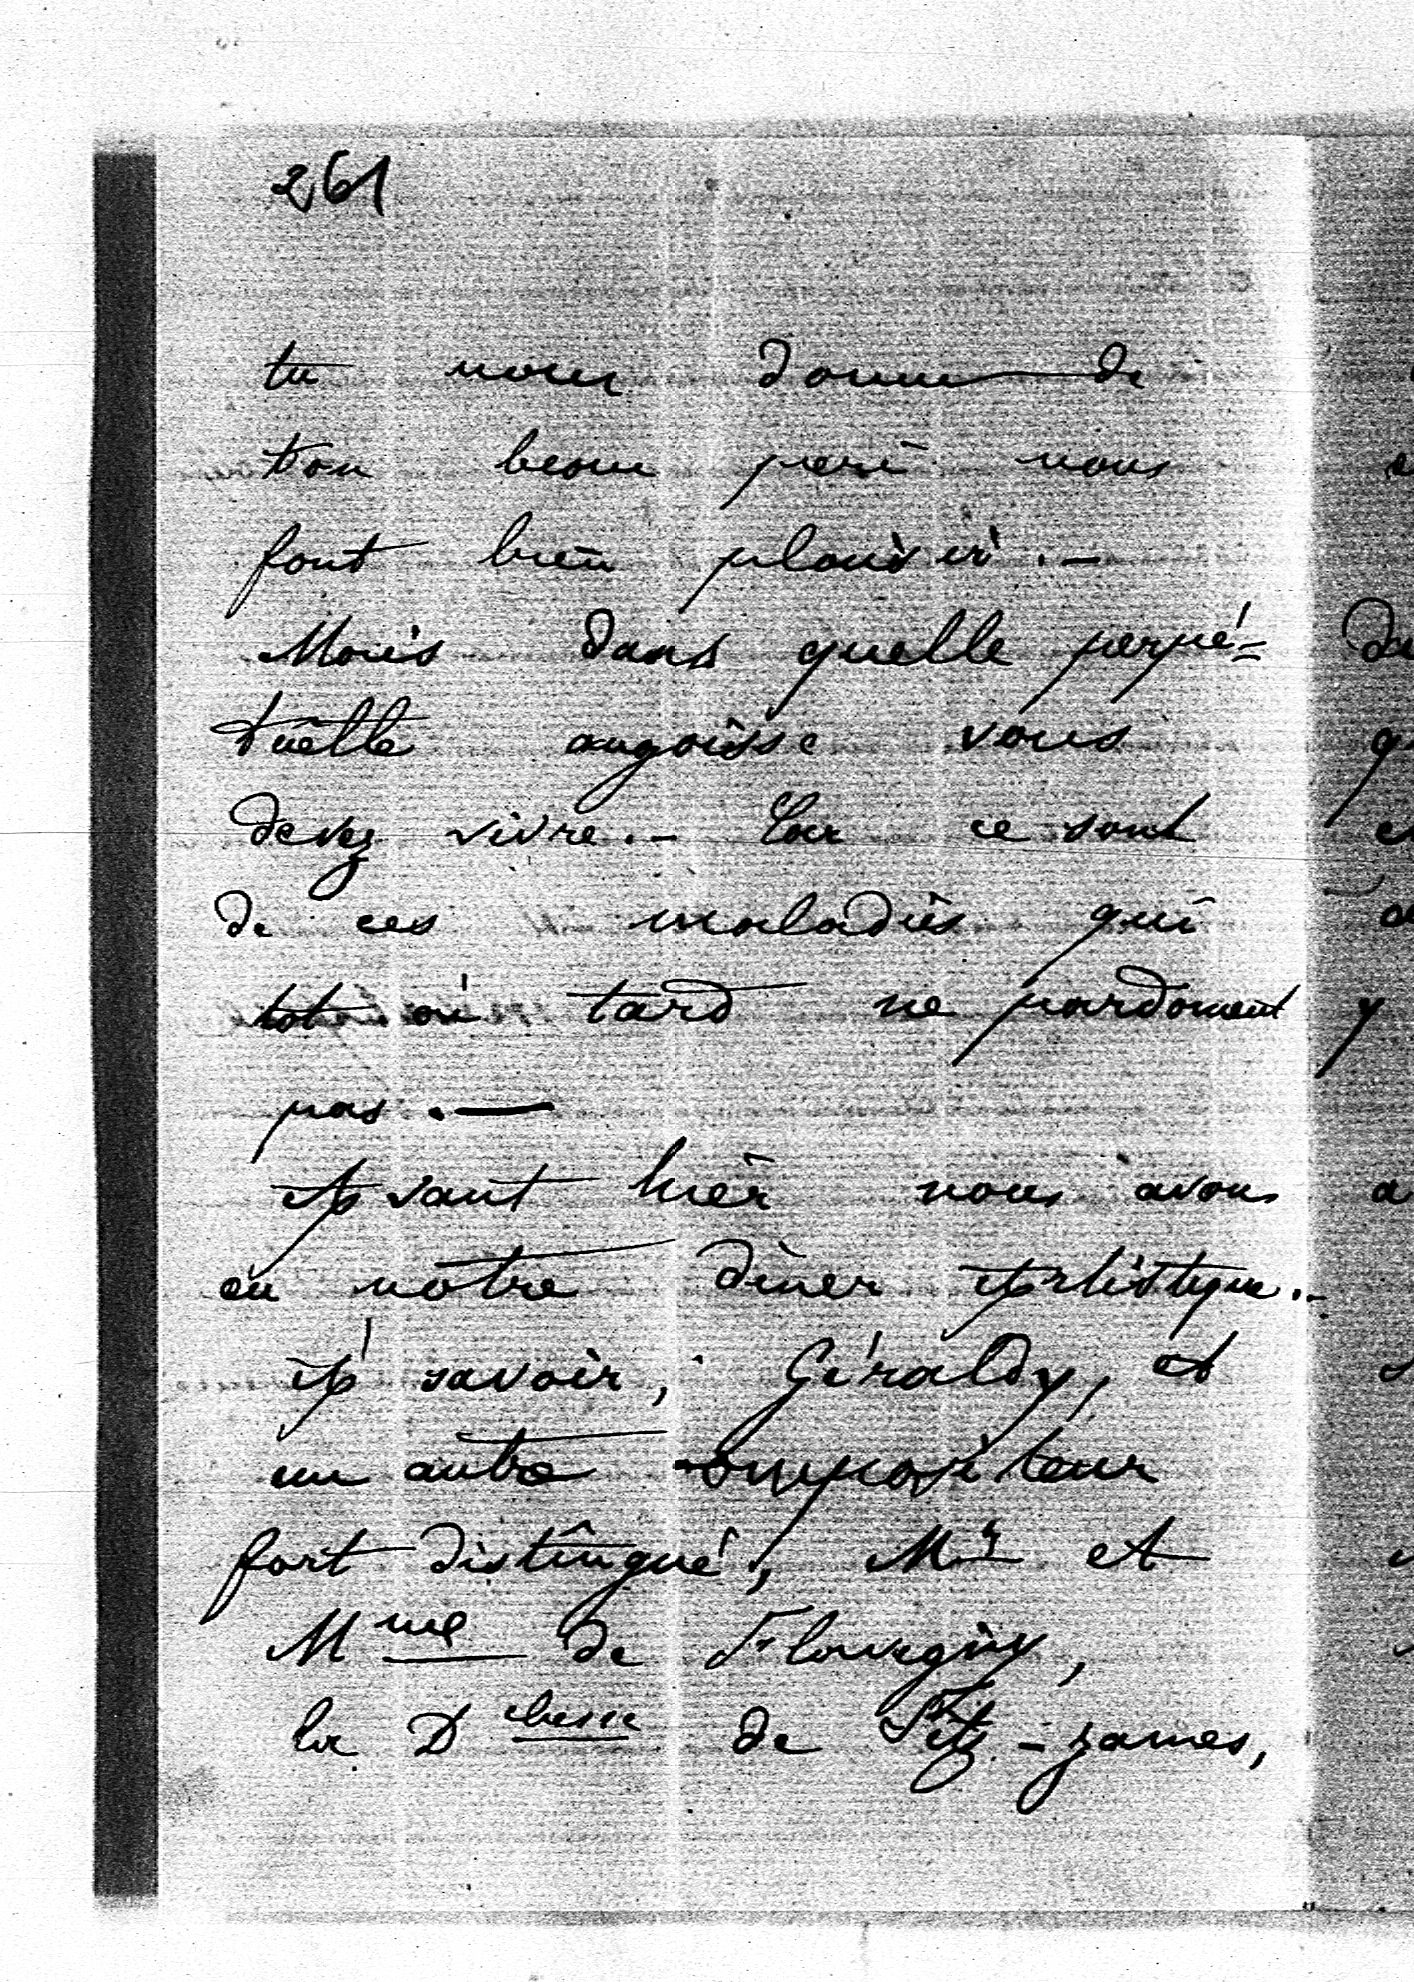 261
tu nous donne de
ton beau père nous
font bien plaisir. -
Mais dans quelle perpé=
tuelle angoisse vous
devez vivre. - Car ce sont
de ces maladies qui
tot ou tard ne pardonnent
pas. —
Avant hier nous avons
eu notre diner Artistique. -
A savoir, Géraldy, et
un autre compositeur
fort distingué, Mr et
Mme de Flavigny,
la Dchesse de Fitz-James,